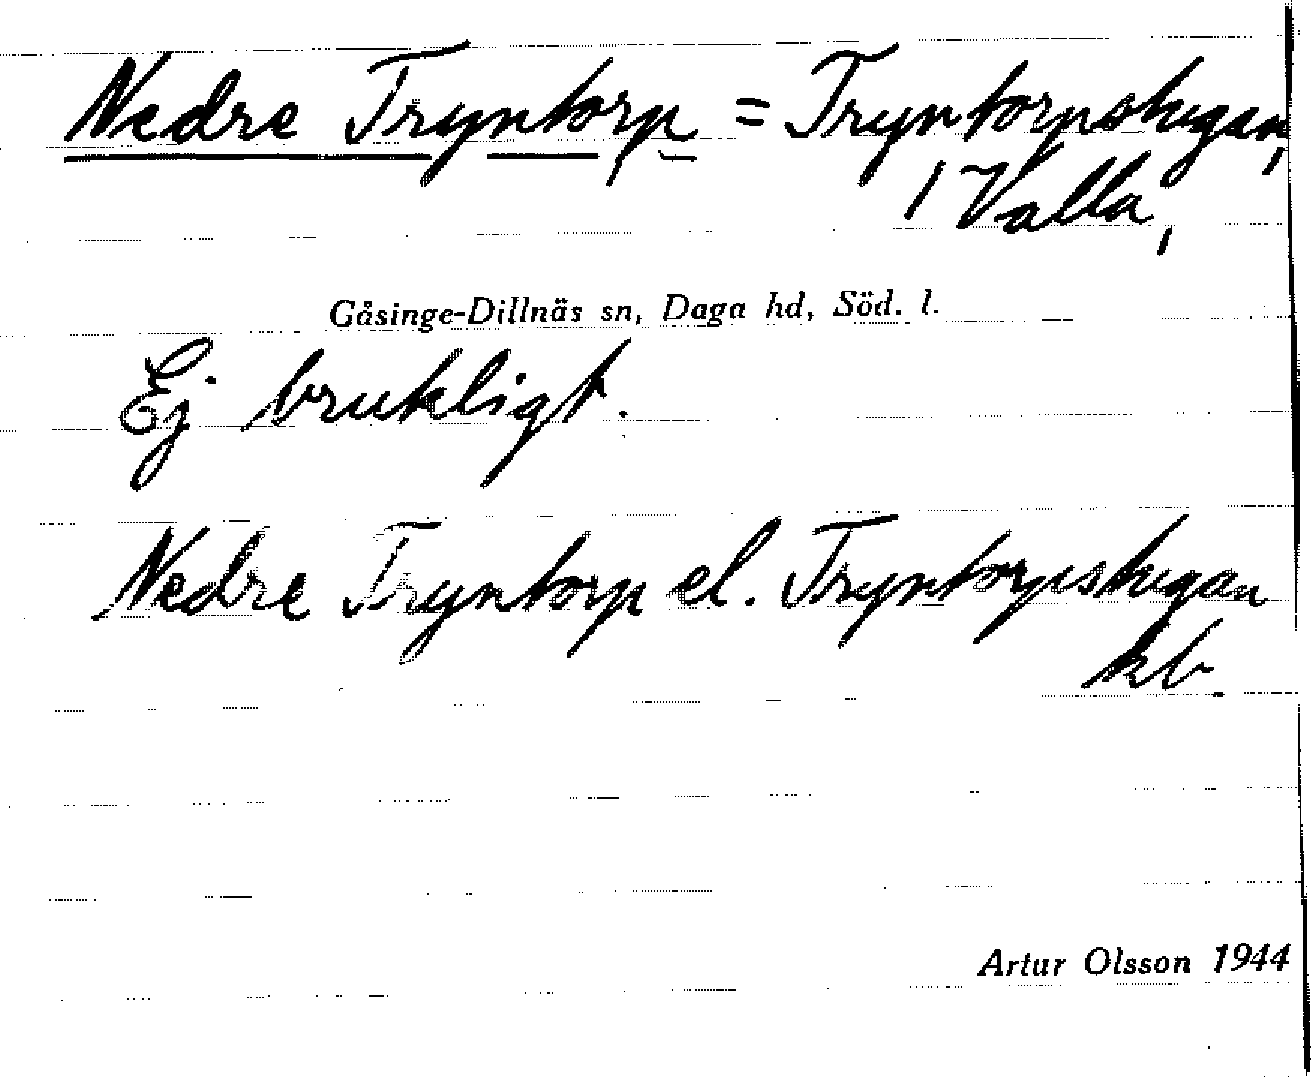 Nedre Tryntorp = Tryntorpstugan,
/ Valla,
Gåsinge-Dillnäs sn, Daga hd, Söd. l.
Ej brukligt.
Nedre Tryntorp el. Tryntorpstugan
kb.
Artur Olsson 1944